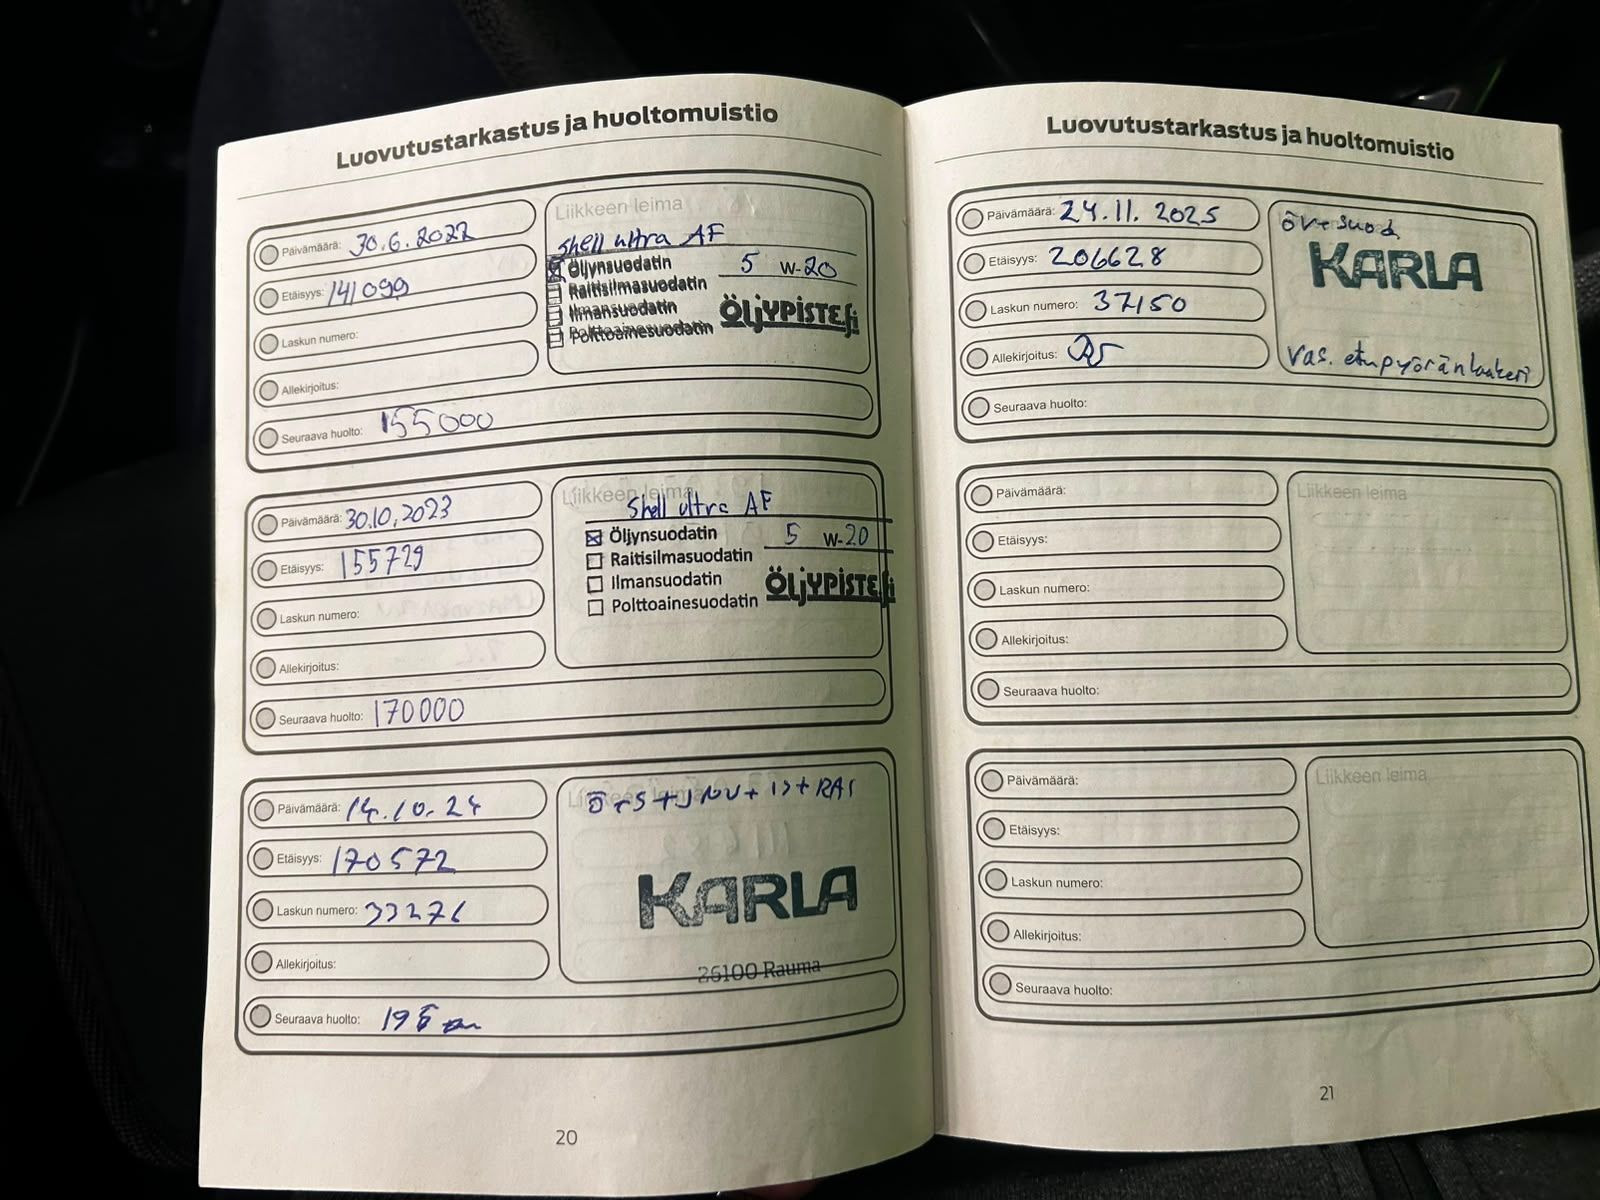 Luovutustarkastus ja huoltomuistio
Päivämäärä: 30.6.2022
Etäisyys: 141099
Laskun numero:
Allekirjoitus:
Seuraava huolto: 155000
Liikkeen leima
Shell ultra AF
Öljynsuodatin 5 W-20
Raitisilmasuodatin
Ilmansuodatin
Polttoainesuodatin
ÖLJYPISTE.fi
Päivämäärä: 30.10.2023
Etäisyys: 155729
Laskun numero:
Allekirjoitus:
Seuraava huolto: 170000
Liikkeen leima
Shell ultra AF
Öljynsuodatin 5 W-20
Raitisilmasuodatin
Ilmansuodatin
Polttoainesuodatin
ÖLJYPISTE.fi
Päivämäärä: 14.10.24
Etäisyys: 170572
Laskun numero: 33276
Allekirjoitus:
Seuraava huolto:
Liikkeen leima
KARLA
26100 Rauma
20
Luovutustarkastus ja huoltomuistio
Päivämäärä: 24.11.2025
Etäisyys: 206628
Laskun numero: 37150
Allekirjoitus:
Seuraava huolto:
öv+suod.
KARLA
Vas. etupyöränlaakeri
Päivämäärä:
Etäisyys:
Laskun numero:
Allekirjoitus:
Seuraava huolto:
Liikkeen leima
Päivämäärä:
Etäisyys:
Laskun numero:
Allekirjoitus:
Seuraava huolto:
Liikkeen leima
21